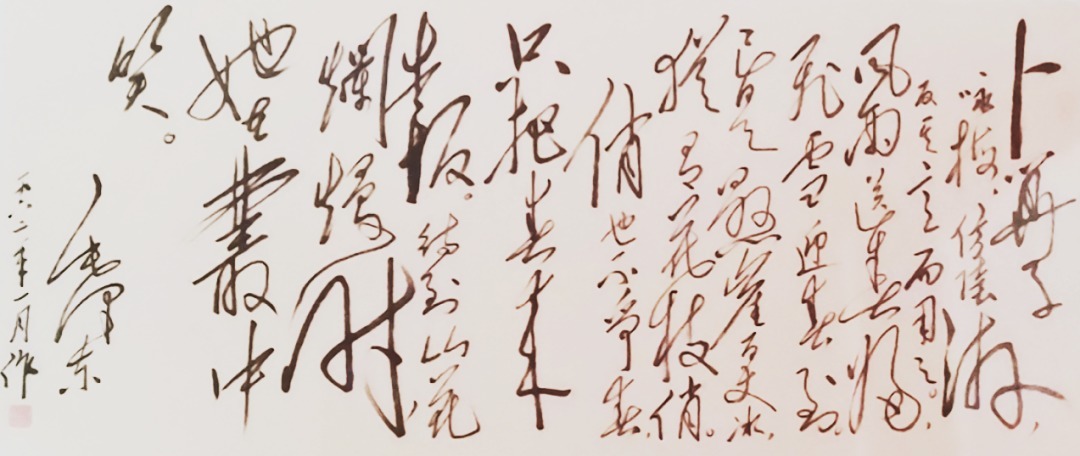 卜算子
咏梅，仿陆游，
反其意而用之。
风雨送春归，
飞雪迎春到。
已是悬崖百丈冰，
犹有花枝俏。
俏也不争春，
只把春来
春报。待到山花
爛熳时，
她在叢中
笑。
毛泽东
一九六二年一月作